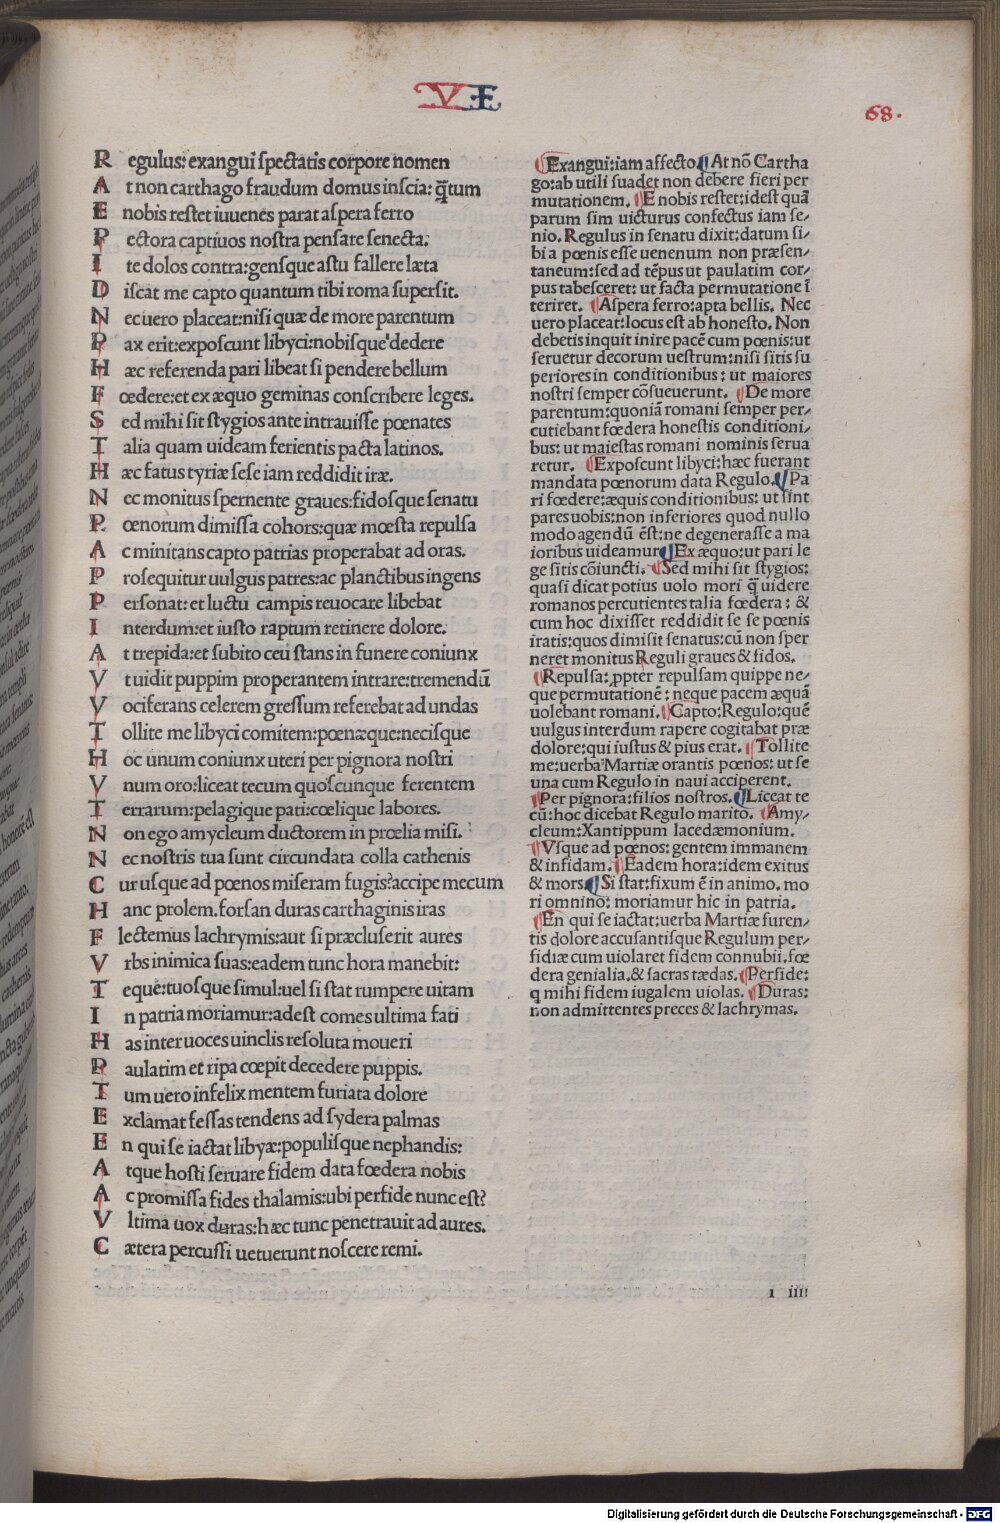 VI
68.
Regulus: exangui spectatis corpore nomen
At non carthago fraudum domus inscia: q̃tum
E nobis restet iuuenes parat aspera ferro
Pectora captiuos nostra pensare senecta:
Ite dolos contra: gensque astu fallere læta
Discat me capto quantum tibi roma supersit.
Nec uero placeat: nisi quæ de more parentum
Pax erit: exposcunt libyci: nobisque dedere
Hæc referenda pari libeat si pendere bellum
Fœdere: et ex æquo geminas conscribere leges.
Sed mihi sit stygios ante intrauisse pœnates
Talia quam uideam ferientis pacta latinos.
Hæc fatus tyriæ sese iam reddidit iræ.
Nec monitus spernente graues: fidosque senatu
Pœnorum dimissa cohors: quæ mœsta repulsa
Ac minitans capto patrias properabat ad oras.
Prosequitur uulgus patres: ac planctibus ingens
Personat: et luctu campis reuocare libebat
Interdum: et iusto raptum retinere dolore.
At trepida: et subito ceu stans in funere coniunx
Vt uidit puppim properantem intrare: tremendũ
Vociferans celerem gressum referebat ad undas
Tollite me libyci comitem: pœnæque: necisque
Hoc unum coniunx uteri per pignora nostri
Vnum oro: liceat tecum quoscunque ferentem
Terrarum: pelagique pati: cœlique labores.
Non ego amycleum ductorem in prœlia misi.
Nec nostris tua sunt circundata colla cathenis
Cur usque ad pœnos miseram fugis? accipe mecum
Hanc prolem. forsan duras carthaginis iras
Flectemus lachrymis: aut si præcluserit aures
Vrbs inimica suas: eadem tunc hora manebit:
Teque: tuosque simul: uel si stat rumpere uitam
In patria moriamur: adest comes ultima fati
Has inter uoces uinclis resoluta moueri
Paulatim et ripa cœpit decedere puppis.
Tum uero infelix mentem furiata dolore
Exclamat fessas tendens ad sydera palmas
En qui se iactat libyæ: populisque nephandis:
Atque hosti seruare fidem data fœdera nobis
Ac promissa fides thalamis: ubi perfide nunc est?
Vltima uox duras: hæc tunc penetrauit ad aures.
Cætera percussi uetuerunt noscere remi.
¶Exangui: iam affecto. ¶At nõ Cartha
go: ab utili suadet non debere fieri per
mutationem. ¶E nobis restet: idest quã
parum sim uicturus confectus iam se/
nio. Regulus in senatu dixit: datum si/
bi a pœnis esse uenenum non præsen/
taneum: sed ad tẽpus ut paulatim cor/
pus tabesceret: ut facta permutatione ĩ
teriret. ¶Aspera ferro: apta bellis. Nec
uero placeat: locus est ab honesto. Non
debetis inquit inire pacẽ cum pœnis: ut
seruetur decorum uestrum: nisi sitis su
periores in conditionibus: ut maiores
nostri semper cõsueuerunt. ¶De more
parentum: quoniã romani semper per/
cutiebant fœdera honestis conditioni/
bus: ut maiestas romani nominis serua
retur. ¶Exposcunt libyci: hæc fuerant
mandata pœnorum data Regulo. ¶Pa
ri fœdere: æquis conditionibus: ut sint
pares uobis: non inferiores quod nullo
modo agendũ ẽst: ne degenerasse a ma
ioribus uideamur ¶Ex æquo: ut pari le
ge sitis cõiuncti. ¶Sed mihi sit stygios:
quasi dicat potius uolo mori q̃ uidere
romanos percutientes talia fœdera: &
cum hoc dixisset reddidit se se pœnis
iratis: quos dimisit senatus: cũ non sper
neret monitus Reguli graues & fidos.
¶Repulsa: ꝓpter repulsam quippe ne/
que permutationẽ: neque pacem æquã
uolebant romani. ¶Capto: Regulo: quẽ
uulgus interdum rapere cogitabat præ
dolore: qui iustus & pius erat. ¶Tollite
me: uerba Martiæ orantis pœnos: ut se
una cum Regulo in naui acciperent.
¶Per pignora: filios nostros. ¶Liceat te
cũ: hoc dicebat Regulo marito. ¶Amy/
cleum: Xantippum lacedæmonium.
¶Vsque ad pœnos: gentem immanem
& infidam. ¶Eadem hora: idem exitus
& mors. ¶Si stat: fixum ẽ in animo. mo
ri omnino: moriamur hic in patria.
¶En qui se iactat: uerba Martiæ furen/
tis dolore accusantisque Regulum per/
fidiæ cum uiolaret fidem connubii. fœ
dera genialia. & sacras tædas. ¶Perfide:
q mihi fidem iugalem uiolas. ¶Duras:
non admittentes preces & lachrymas.
i iiii
Digitalisierung gefördert durch die Deutsche Forschungsgemeinschaft - DFG